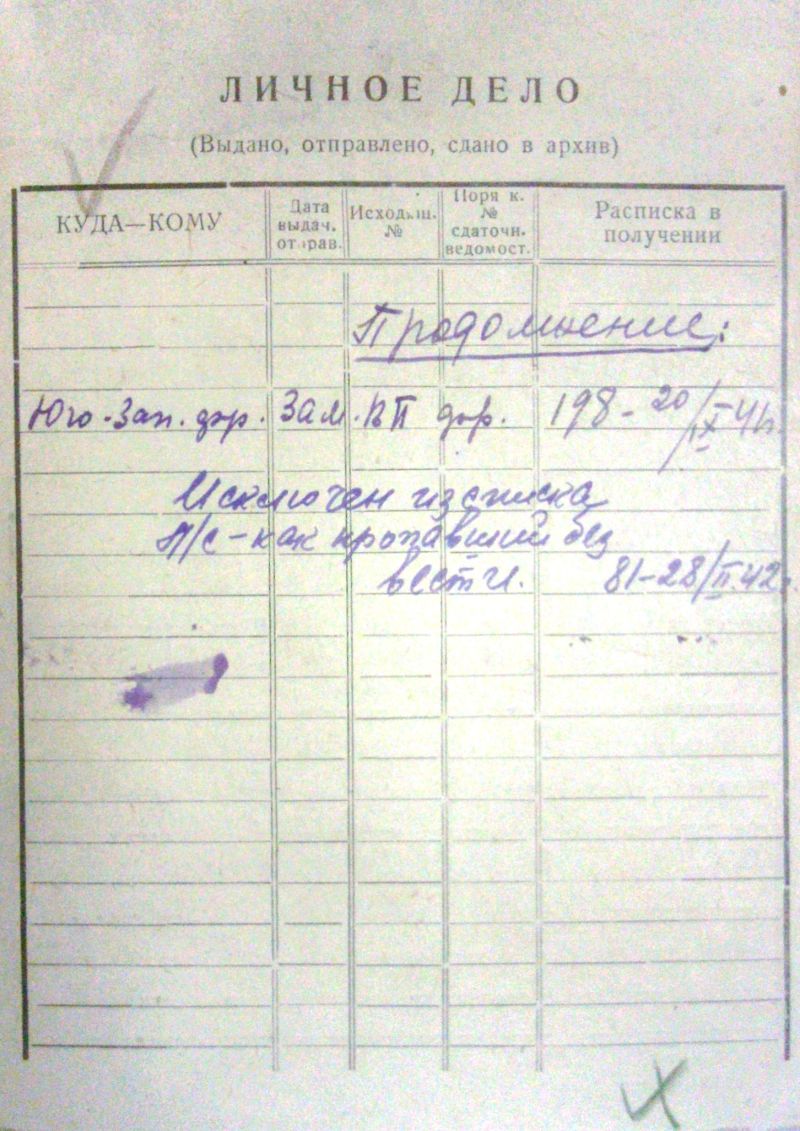 ЛИЧНОЕ ДЕЛО
(Выдано, отправлено, сдано в архив)
КУДА—КОМУ
Дата
выдач.
отправ.
Исходящ.
№
Поряк.
№
сдаточн.
ведомост.
Расписка в
получении
Продолжение:
Юго-Зап. фр. Зам. НП фр. 198-20/IX 41г.
Исключен из списка
Л/С - как пропавший без
вести. 81-28/II.42г.